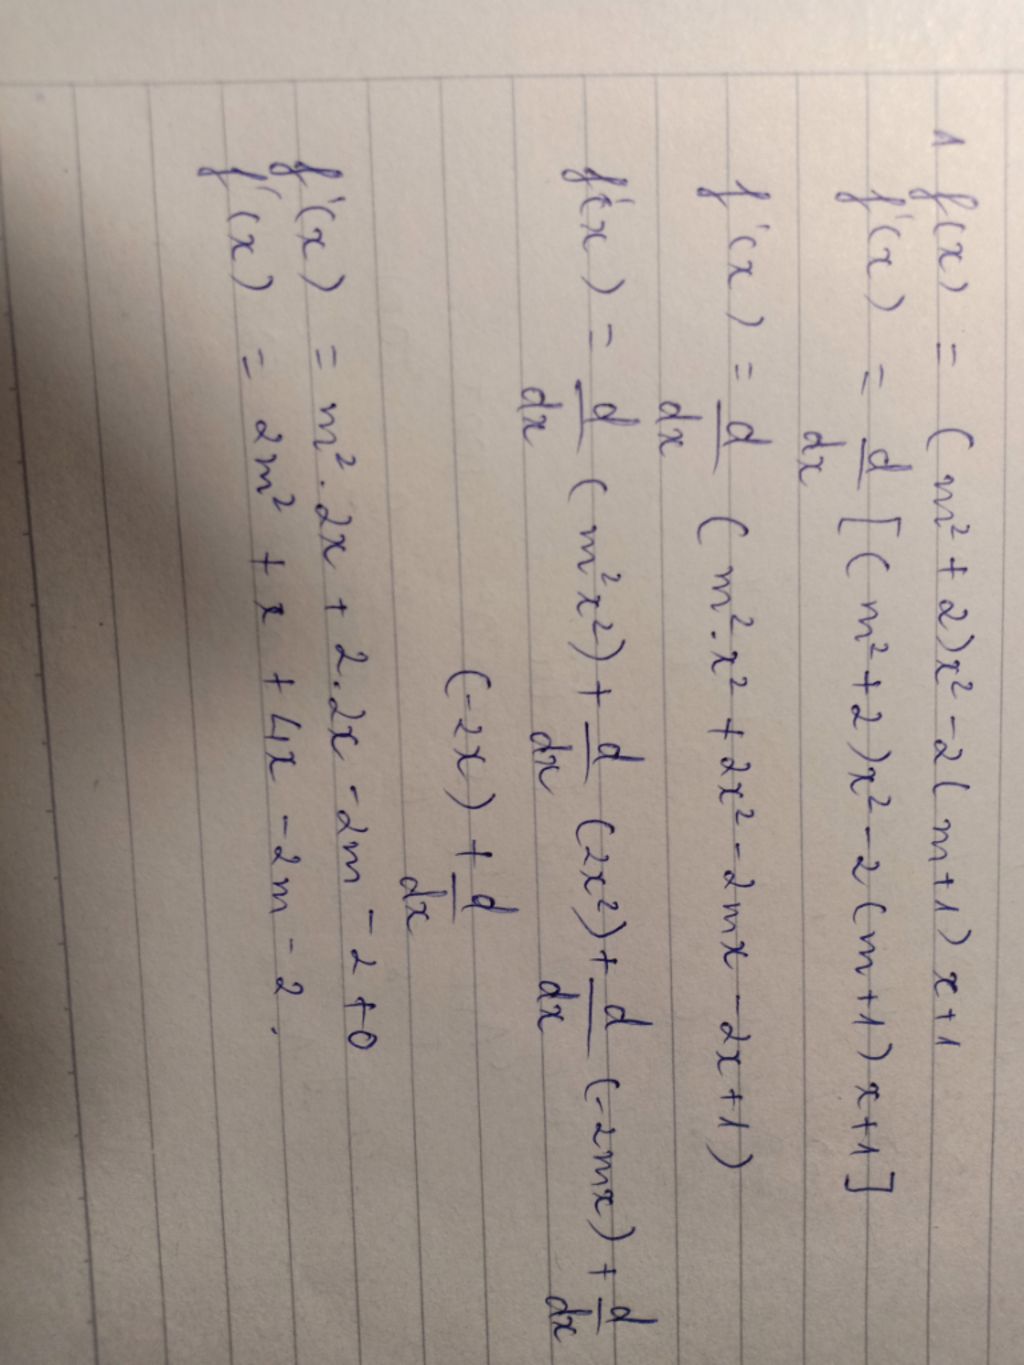 1 f(x) = (m²+2)x²-2(m+1)x+1
f'(x) = d/dx [(m²+2)x²-2(m+1)x+1]
f'(x) = d/dx (m².x²+2x²-2mx-2x+1)
f'(x) = d/dx (m²x²)+ d/dx (2x²)+ d/dx (-2mx)+ d/dx
(-2x)+ d/dx
f'(x) = m².2x+2.2x-2m-2+0
f'(x) = 2m²+x+4x-2m-2.